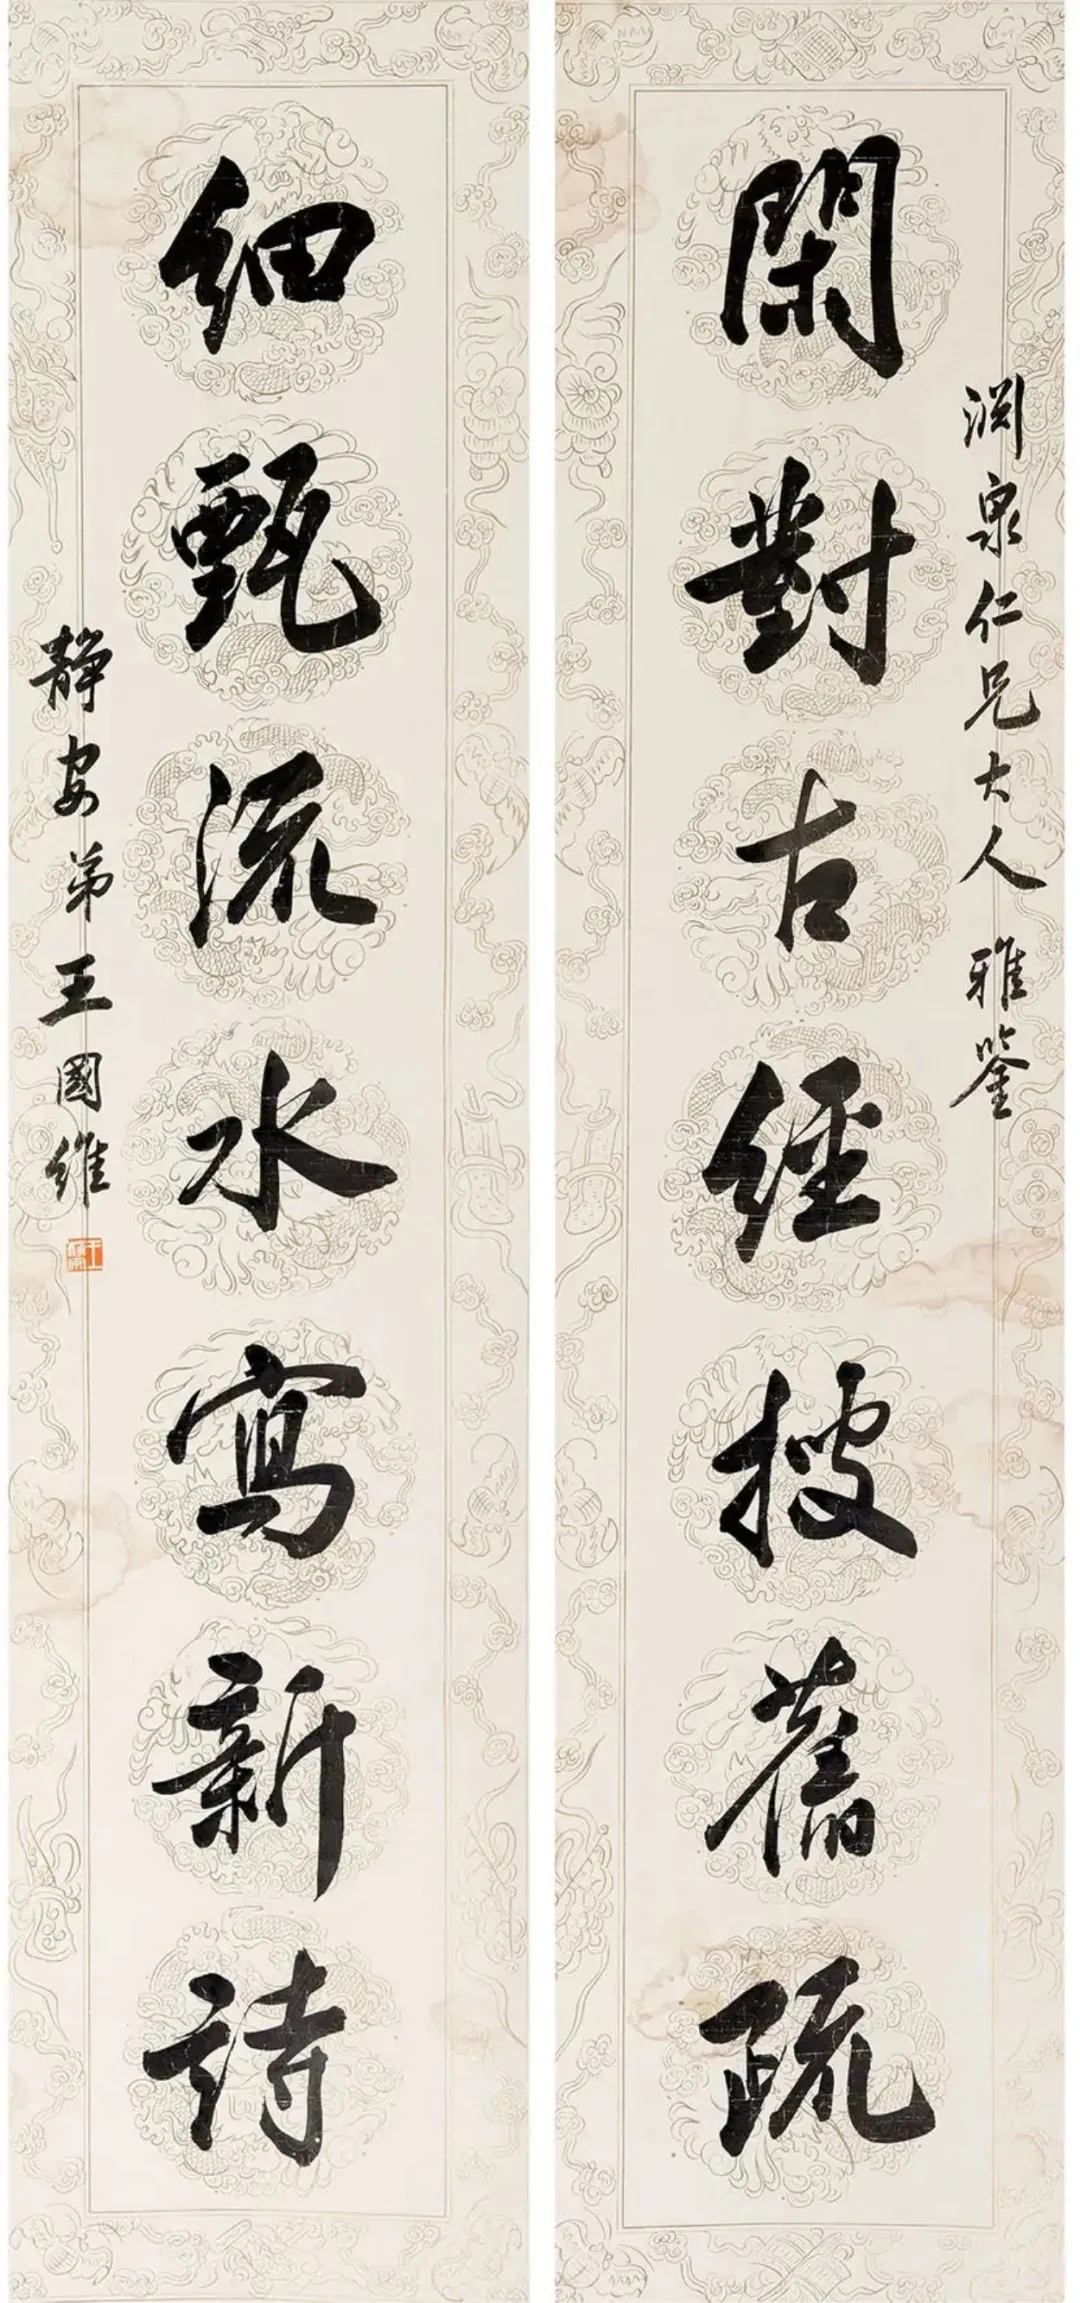 渊泉仁兄大人雅鉴
閑對古經搜舊疏
細甄流水寫新詩
静安弟王國維